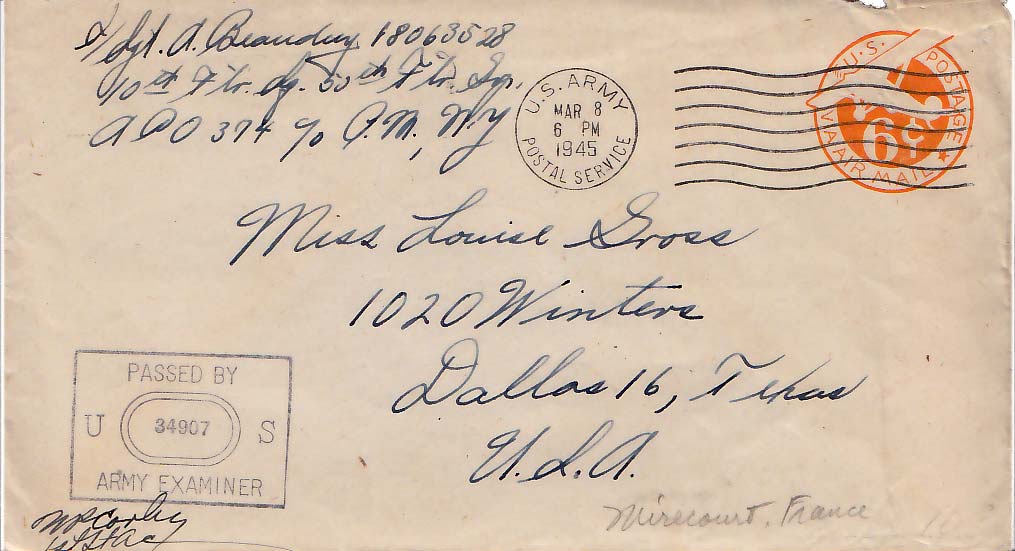 S/Sgt. A. Beaudry 18063528
10th Ftr. Sq. 50th Ftr. Gp.
APO 374 c/o P.M., N.Y
U.S. ARMY
MAR 8
6 PM
1945
POSTAL SERVICE
U.S. POSTAGE
6¢
VIA AIR MAIL
Miss Louise Gross
1020 Winters
Dallas 16, Texas
U.S.A.
PASSED BY
U 34907 S
ARMY EXAMINER
1st Lt AC
Mirecourt, France